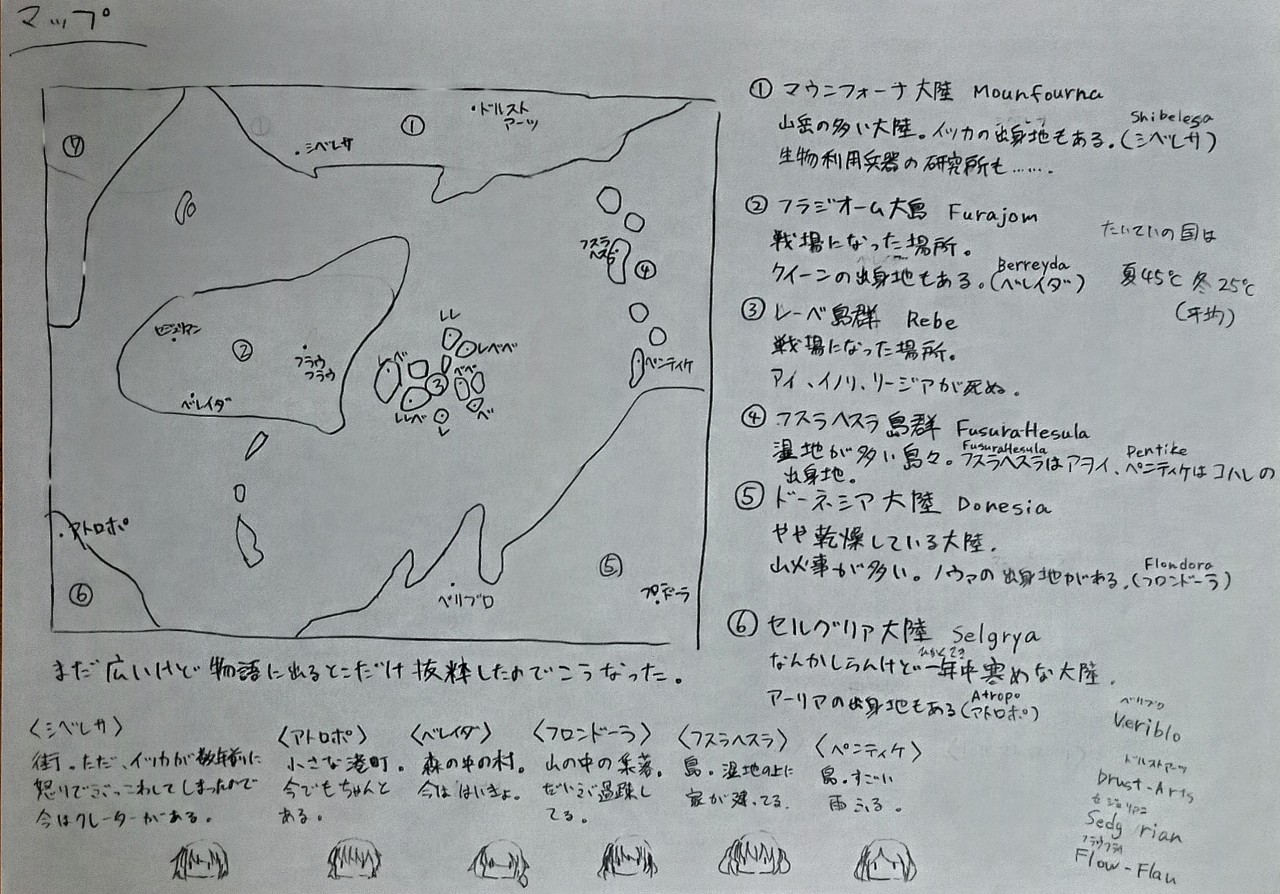 マップ
⑦
①
・ドルスト
アーツ
・シベレサ
フスラ
ヘスラ
④
セジュリアン
②
フラウ
フラウ
ベレイダ
レレ
レベベ
レーベ
③
ベベ
レレベ
レ
ベ
ペンティケ
・アトロポ
⑥
ベリブロ
⑤
フロンドーラ
まだ広いけど物語に出るとこだけ抜粋したのでこうなった。
① マウンフォーナ大陸 Mounfourna
山岳の多い大陸。イッカの出身地もある。(シベレサ)
Shibelesa
生物利用兵器の研究所も…….
② フラジオーム大島 Furajom
戦場になった場所。
クイーンの出身地もある。(ベレイダ)
Berreyda
たいていの国は
夏45℃ 冬25℃
(平均)
③ レーベ島群 Rebe
戦場になった場所。
アイ、イノリ、リージアが死ぬ。
④ フスラヘスラ島群 FusuraHesula
湿地が多い島々。フスラヘスラはアヲイ、ペンティケはコハレの
FusuraHesula
Pentike
出身地。
⑤ ドーネシア大陸 Donesia
やや乾燥している大陸.
山火事が多い。ノヴァの出身地がある.(フロンドーラ)
Flondora
⑥ セルグリア大陸 Selgrya
なんかしらんけど一年中寒めな大陸.
ひかくてき
アーリアの出身地もある(アトロポ)
Atropo
ベリブロ
Veriblo
ドルストアーツ
Drust-Arts
セジュリアン
Sedgrian
フラウフラウ
Flow-Flau
〈シベレサ〉
街。ただ、イッカが数年前に
怒りでぶっこわしてしまったので
今はクレーターがある。
〈アトロポ〉
小さな港町。
今でもちゃんと
ある。
〈ベレイダ〉
森の中の村。
今ははいきょ。
〈フロンドーラ〉
山の中の集落。
だいぶ過疎し
てる.
〈フスラヘスラ〉
島。湿地の上に
家が建ってる.
〈ペンティケ〉
島。すごい
雨ふる。